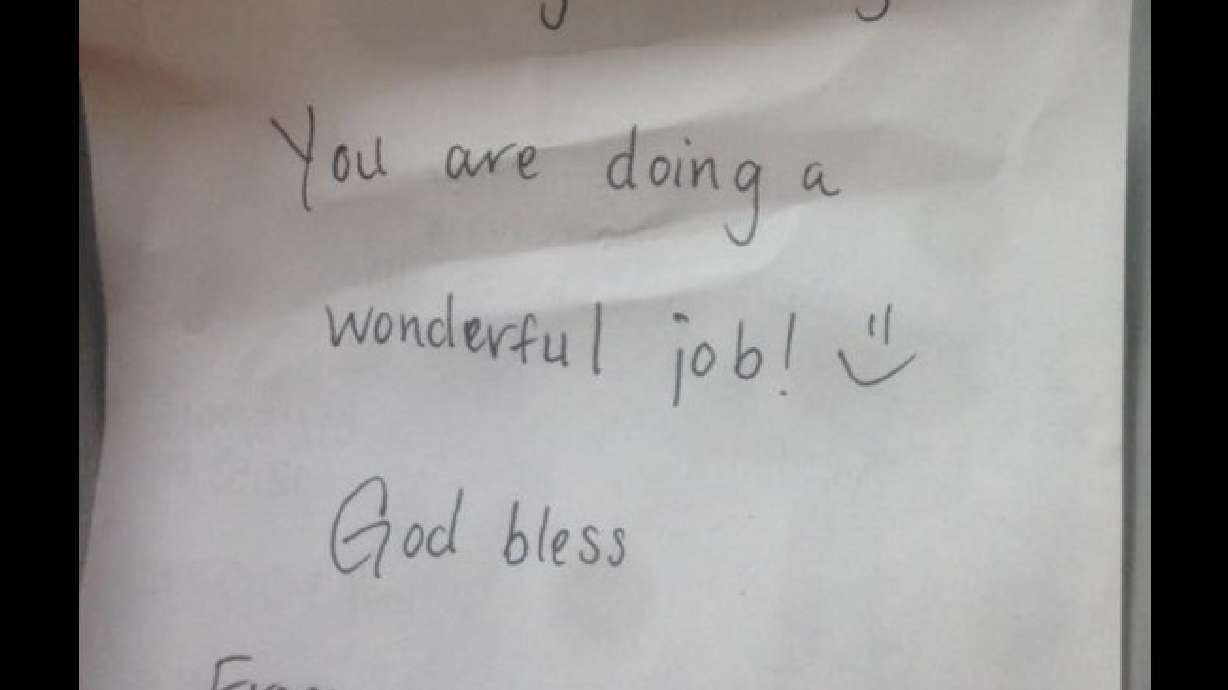 You are doing a
wonderful job! :)
God bless